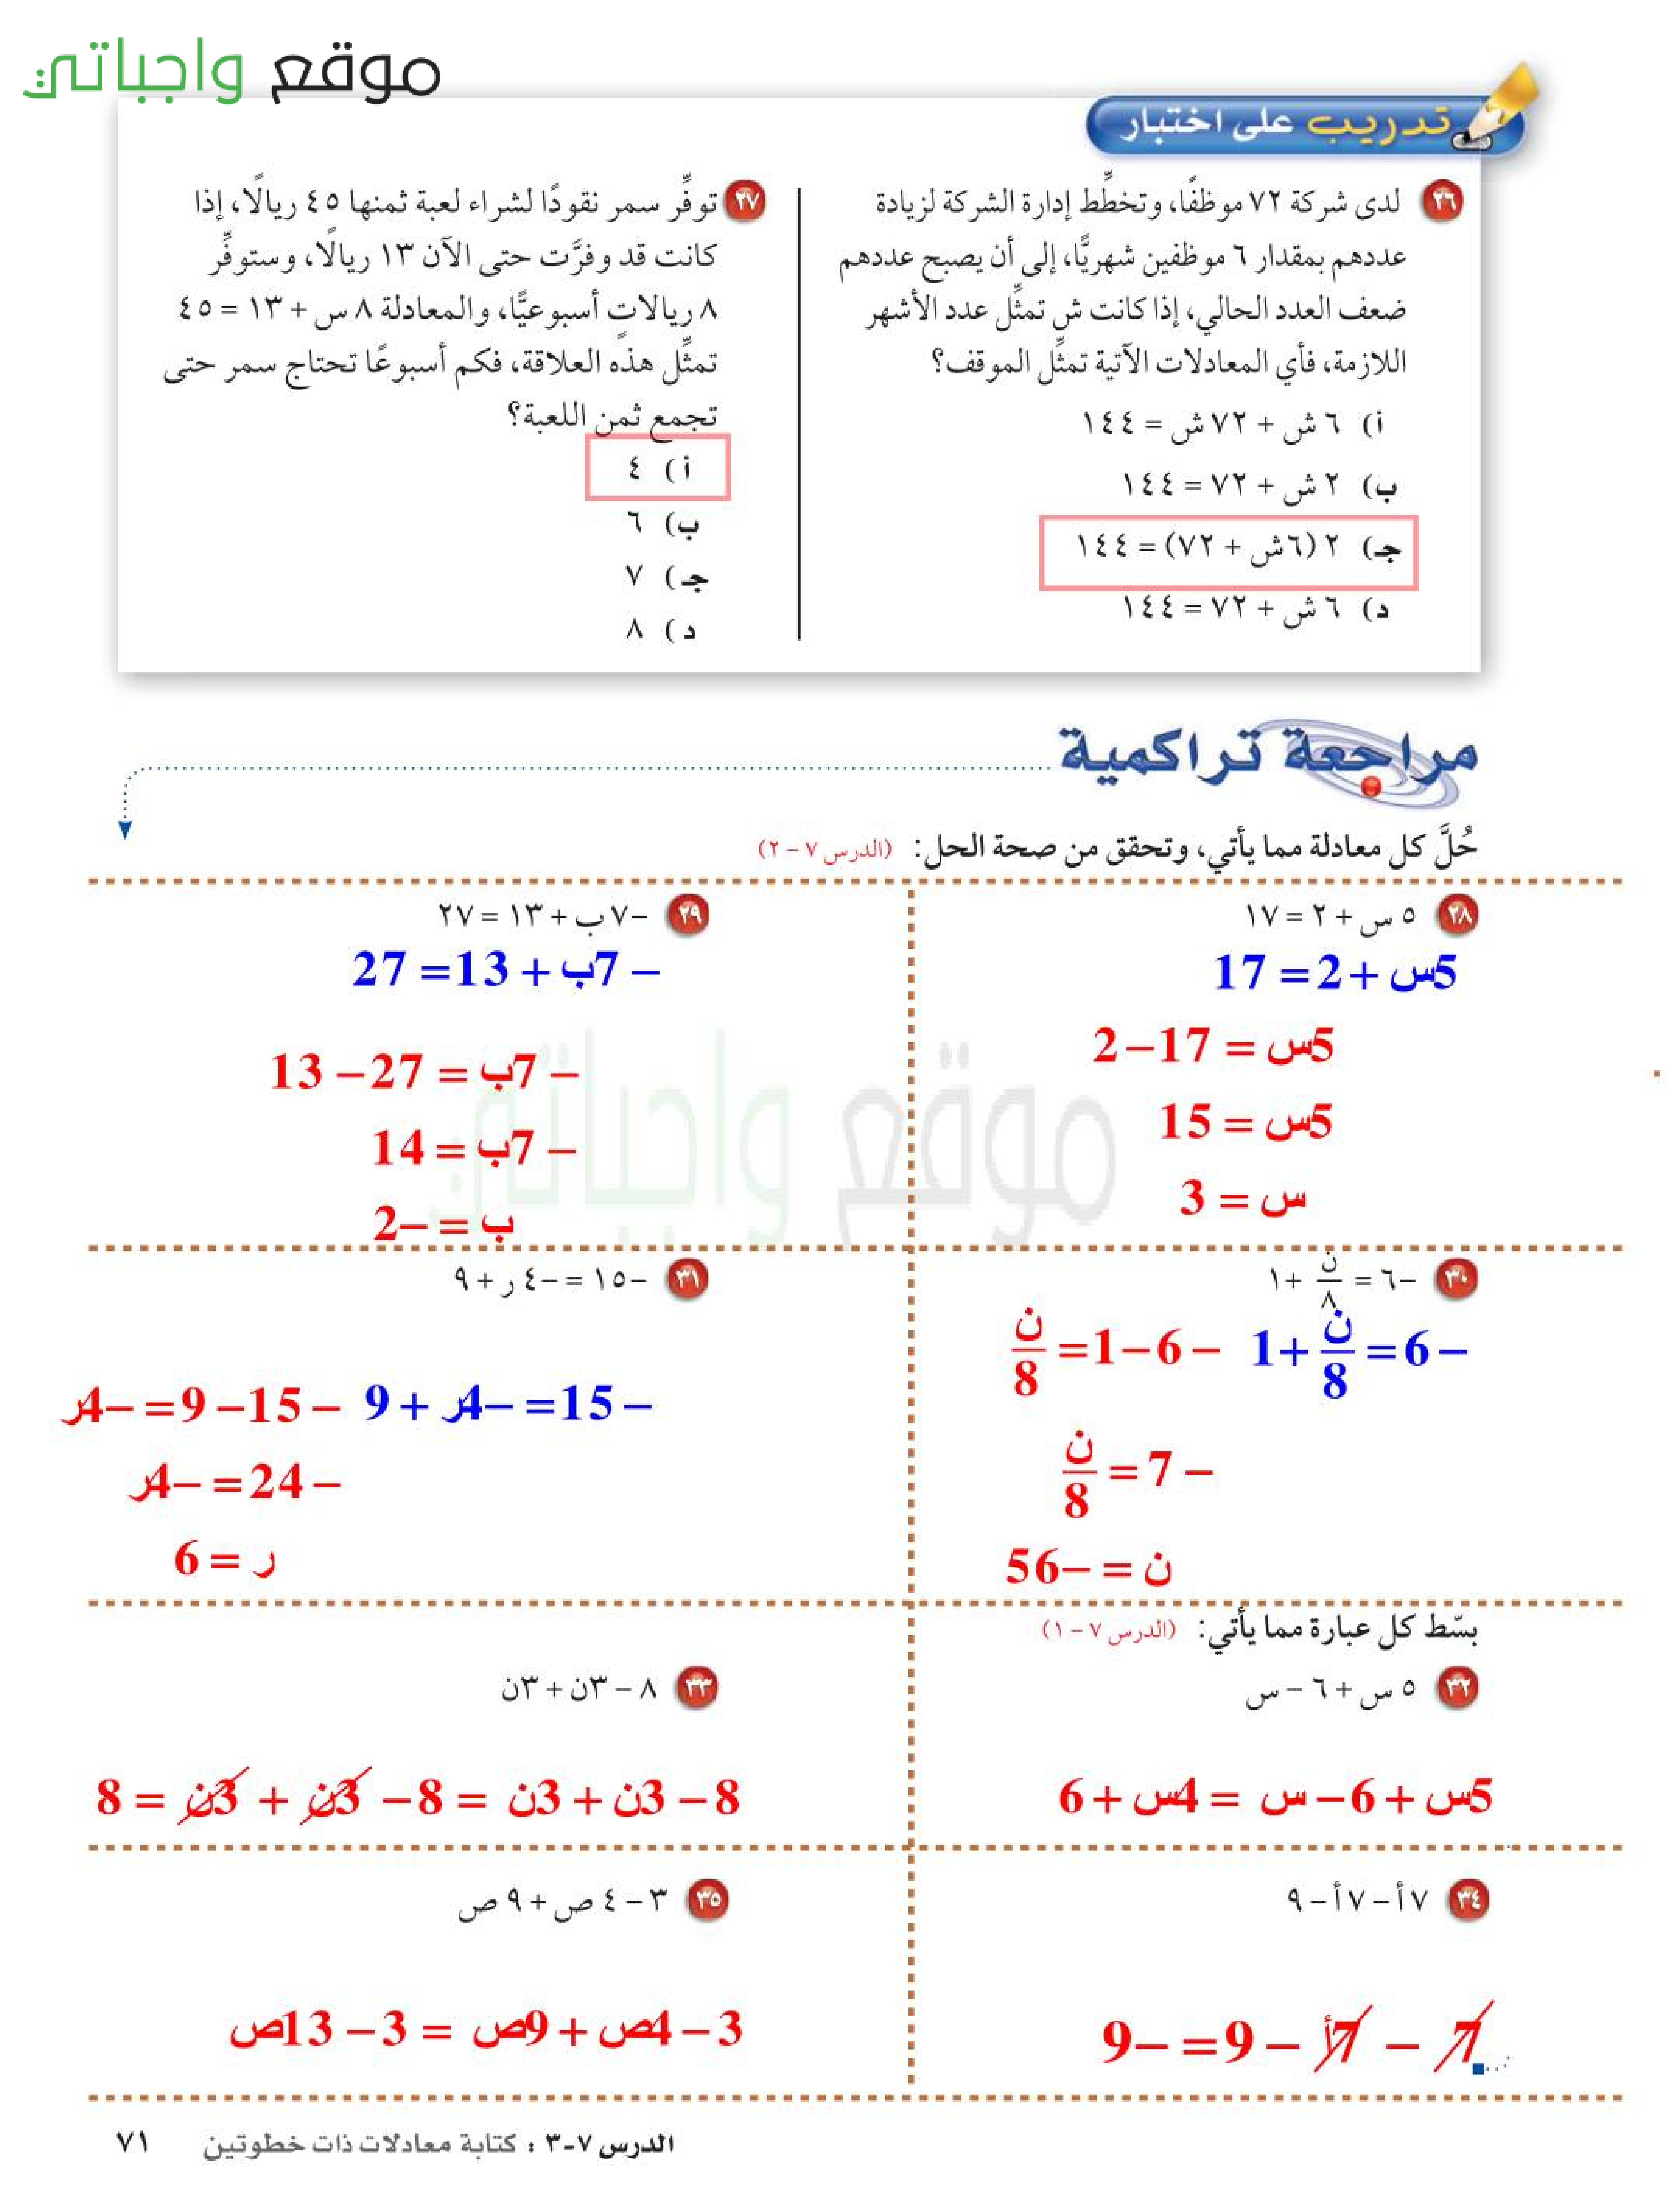 موقع واجباتي
تدريب على اختبار
٢٦ لدى شركة ٧٢ موظفًا، وتخطِّط إدارة الشركة لزيادة
عددهم بمقدار ٦ موظفين شهريًّا، إلى أن يصبح عددهم
ضعف العدد الحالي، إذا كانت ش تمثِّل عدد الأشهر
اللازمة، فأي المعادلات الآتية تمثِّل الموقف؟
أ) ٦ ش + ٧٢ ش = ١٤٤
ب) ٢ ش + ٧٢ = ١٤٤
جـ) ٢ (٦ش + ٧٢) = ١٤٤
د) ٦ ش + ٧٢ = ١٤٤
٢٧ توفِّر سمر نقودًا لشراء لعبة ثمنها ٤٥ ريالًا، إذا
كانت قد وفرَّت حتى الآن ١٣ ريالًا، وستوفِّر
٨ ريالات أسبوعيًّا، والمعادلة ٨ س + ١٣ = ٤٥
تمثِّل هذه العلاقة، فكم أسبوعًا تحتاج سمر حتى
تجمع ثمن اللعبة؟
أ) ٤
ب) ٦
جـ) ٧
د) ٨
مراجعة تراكمية
حُلَّ كل معادلة مما يأتي، وتحقق من صحة الحل: (الدرس ٧ – ٢)
٢٨ ٥ س + ٢ = ١٧
5س + 2 = 17
5س = 17 – 2
5س = 15
س = 3
٢٩ –٧ ب + ١٣ = ٢٧
– 7ب + 13 = 27
– 7ب = 27 – 13
– 7ب = 14
ب = –2
٣٠ –٦ = ن/٨ + ١
– 6 = ن/8 + 1
– 6 – 1 = ن/8
– 7 = ن/8
ن = –56
٣١ –١٥ = –٤ ر + ٩
– 15 = –4ر + 9
– 15 – 9 = –4ر
– 24 = –4ر
ر = 6
بسّط كل عبارة مما يأتي: (الدرس ٧ – ١)
٣٢ ٥ س + ٦ – س
5س + 6 – س = 4س + 6
٣٣ ٨ – ٣ن + ٣ن
8 – 3ن + 3ن = 8 – 3ن + 3ن = 8
٣٤ ٧ أ – ٧ أ – ٩
7 – 7أ – 9 = –9
٣٥ ٣ – ٤ ص + ٩ ص
3 – 4ص + 9ص = 3 – 13ص
موقع واجباتي
الدرس ٧-٣ : كتابة معادلات ذات خطوتين ٧١